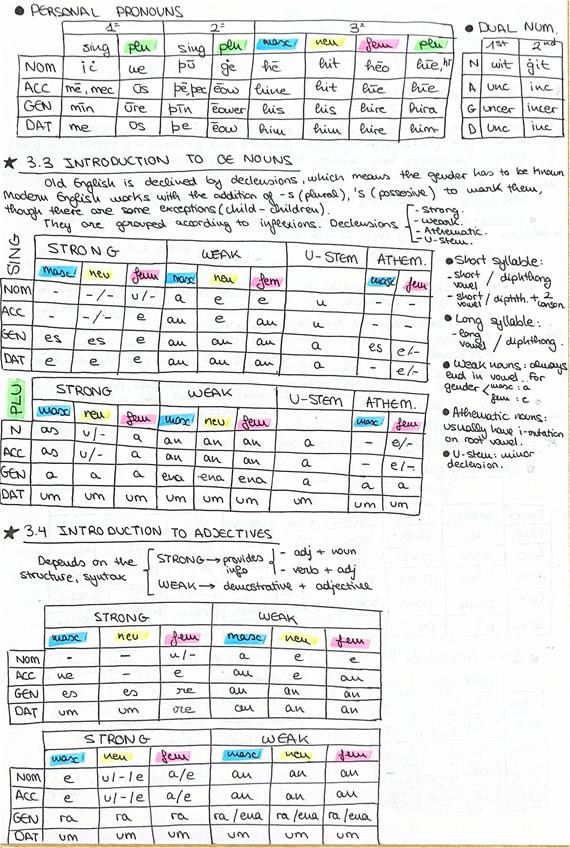 • PERSONAL PRONOUNS
1ª 2ª 3ª
sing plu sing plu masc neu fem plu
NOM iċ we þū ġe hē hit hēo hīe, hī
ACC mē, mec ūs þē, þec ēow hine hit hīe hīe
GEN mīn ūre þīn ēower his his hire hira
DAT me us þe ēow him him hire him
• DUAL NUM.
1st 2nd
N wit ġit
A unc inc
G uncer incer
D unc inc
★ 3.3 INTRODUCTION TO OE NOUNS
Old English is declined by declensions, which means the gender has to be known
Modern English works with the addition of -s (plural), 's (possesive) to mark them,
though there are some exceptions (child - children).
They are grouped according to inflexions. Declensions
- Strong.
- Weak.
- Athematic.
- U-stem.
SING
STRONG WEAK U-STEM ATHEM.
masc neu fem masc neu fem masc fem
NOM - -/- u/- a e e u - -
ACC - -/- e an e an u - -
GEN es es e an an an a es e/-
DAT e e e an an an a e/-
PLU
STRONG WEAK U-STEM ATHEM.
masc neu fem masc neu fem masc fem
N as u/- a an an an a - e/-
ACC as u/- a an an an a - e/-
GEN a a a ena -ena ena a a a
DAT um um um um um um um um um
• Short syllable:
- short vowel / diphthong
- short vowel / diphth. + 2 conson
• Long syllable:
- long vowel / diphthong.
• Weak nouns: always
end in vowel. For
gender masc: a
fem: e
• Athematic nouns:
usually have i-mutation
on root vowel.
• U-stem: minor
declension.
★ 3.4 INTRODUCTION TO ADJECTIVES
Depends on the
structure, syntax
STRONG → provides info
- adj + noun
- verb + adj
WEAK → demostrative + adjective
STRONG WEAK
masc neu fem masc neu fem
NOM - - u/- a e e
ACC ne - e an e an
GEN es es re an an an
DAT um um re an an an
STRONG WEAK
masc neu fem masc neu fem
NOM e u/-/e a/e an an an
ACC e u/-/e a/e an an an
GEN ra ra ra ra/ena ra/ena ra/ena
DAT um um um um um um